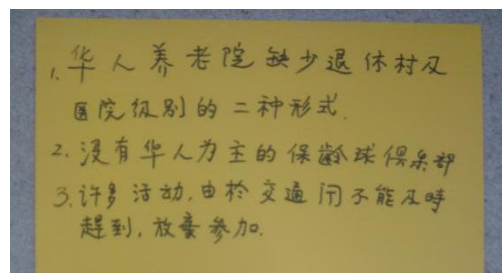 1. 华人养老院缺少退休村及
医院级别的二种形式.
2. 没有华人为主的保龄球俱乐部
3. 许多活动,由於交通问不能及時
赶到,放棄参加.